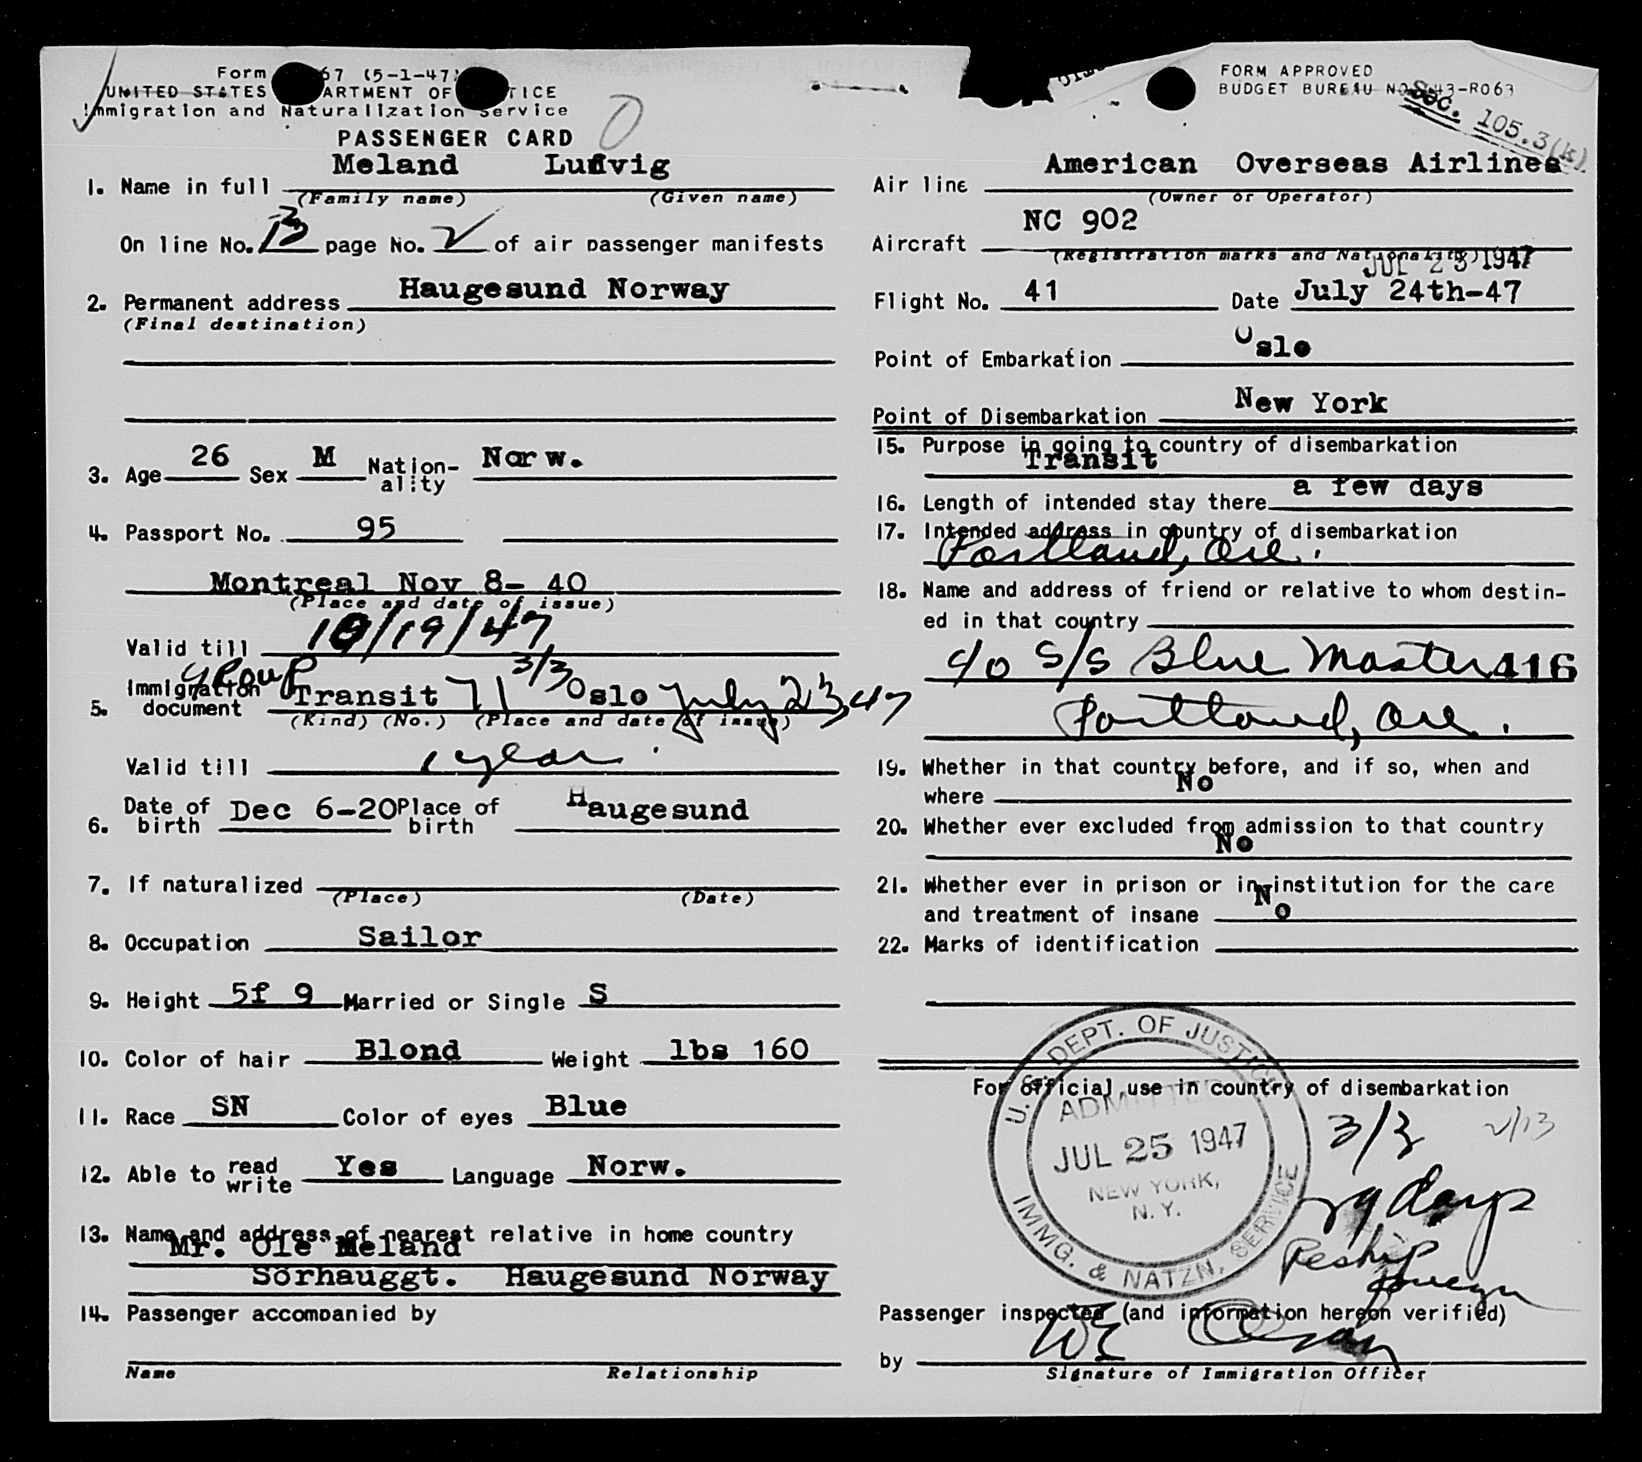 Form 67 (5-1-47)
UNITED STATES ARTMENT OF TICE
Immigration and Naturalization Service
PASSENGER CARD
0
FORM APPROVED
BUDGET BUREAU NO. 43-R063
Sec. 105.3(k)
Meland Ludvig
1. Name in full
(Family name) (Given name)
On line No. page No. 2 of air passenger manifests
Haugesund Norway
2. Permanent address
(Final destination)
26 M Norw.
3. Age Sex Nation-
ality
4. Passport No. 95
Montreal Nov 8- 40
(Place and date of issue)
Valid till 10/19/47
group 3/3
5. Immigration
document Transit 71 Oslo July 23, 47
(Kind) (No.) (Place and date of issue)
Valid till 1 year.
6. Date of
birth Dec 6-20 Place of
birth Haugesund
7. If naturalized
(Place) (Date)
8. Occupation Sailor
9. Height 5f 9 Married or Single S
10. Color of hair Blond Weight lbs 160
11. Race SN Color of eyes Blue
12. Able to read
write Yes Language Norw.
13. Name and address of nearest relative in home country
Mr. Ole Meland
Sörhauggt. Haugesund Norway
14. Passenger accompanied by
Name Relationship
American Overseas Airlines
Air line
(Owner or Operator)
NC 902
Aircraft
(Registration marks and Nationality)
JUL 23 1947
Flight No. 41 Date July 24th-47
Oslo
Point of Embarkation
New York
Point of Disembarkation
15. Purpose in going to country of disembarkation
Transit
16. Length of intended stay there a few days
17. Intended address in country of disembarkation
Portland, Ore.
18. Name and address of friend or relative to whom destin-
ed in that country
c/o S/S Blue Master 416
Portland, Ore.
19. Whether in that country before, and if so, when and
where No
20. Whether ever excluded from admission to that country
No
21. Whether ever in prison or in institution for the care
and treatment of insane No
22. Marks of identification
For official use in country of disembarkation
U. S. DEPT. OF JUSTICE
ADMITTED
JUL 25 1947
NEW YORK,
N. Y.
IMMG. & NATZN. SERVICE
3/3 2/13
29 days
Reship
foreign
Passenger inspected (and information hereon verified)
by
Signature of Immigration Officer